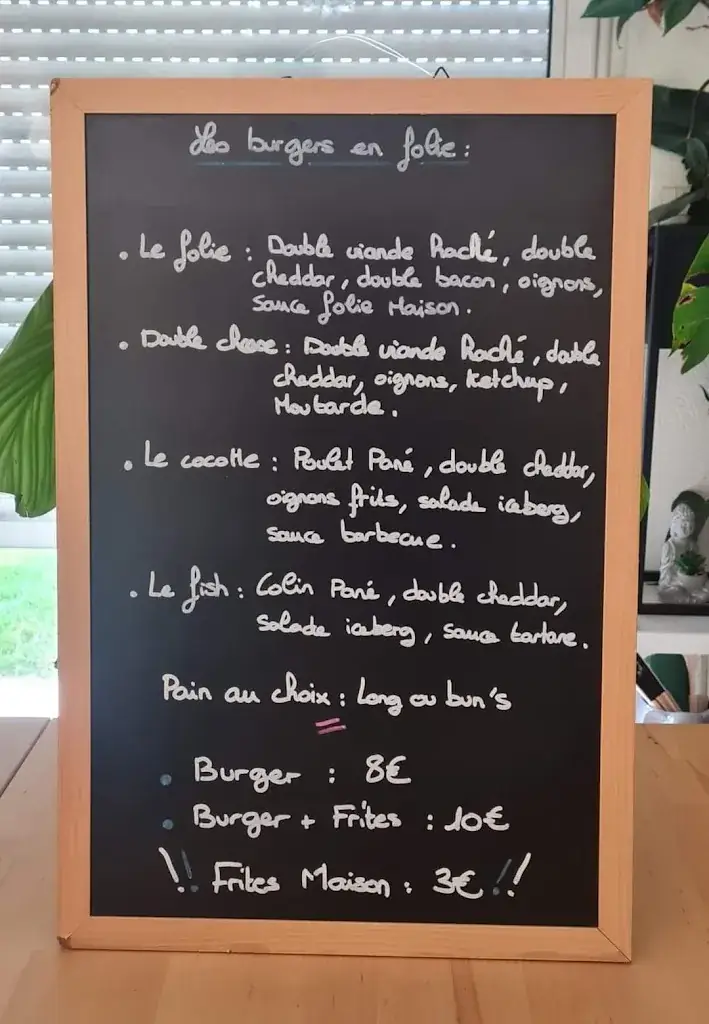 Les burgers en folie :
. Le folie : Double viande Haché, double
cheddar, double bacon, oignons,
sauce folie Maison.
. Double cheese : Double viande Haché, double
cheddar, oignons, Ketchup,
Moutarde.
. Le cocotte : Poulet Pané, double cheddar,
oignons frits, salade iceberg,
sauce barbecue.
. Le fish : Colin Pané, double cheddar,
salade iceberg, sauce tartare.
Pain au choix : Long ou bun's
• Burger : 8€
• Burger + Frites : 10€
!! Frites Maison : 3€ !!